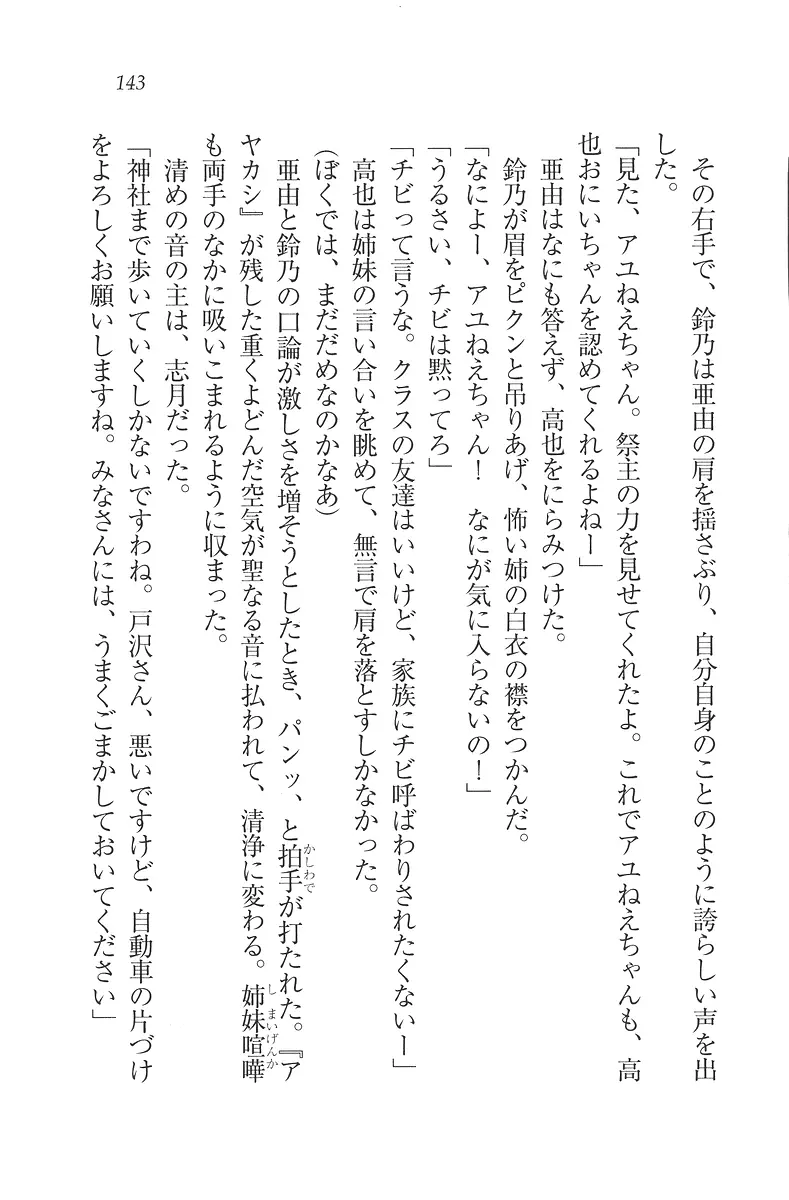 143
その右手で、鈴乃は亜由の肩を揺さぶり、自分自身のことのように誇らしい声を出
した。
「見た、アユねえちゃん。祭主の力を見せてくれたよ。これでアユねえちゃんも、高
也おにいちゃんを認めてくれるよねー」
亜由はなにも答えず、高也をにらみつけた。
鈴乃が眉をピクンと吊りあげ、怖い姉の白衣の襟をつかんだ。
「なによー、アユねえちゃん！　なにが気に入らないの！」
「うるさい、チビは黙ってろ」
「チビって言うな。クラスの友達はいいけど、家族にチビ呼ばわりされたくないー」
高也は姉妹の言い合いを眺めて、無言で肩を落とすしかなかった。
（ぼくでは、まだだめなのかなあ）
亜由と鈴乃の口論が激しさを増そうとしたとき、パンッ、と拍手が打たれた。『ア
ヤカシ』が残した重くよどんだ空気が聖なる音に払われて、清浄に変わる。姉妹喧嘩
も両手のなかに吸いこまれるように収まった。
清めの音の主は、志月だった。
「神社まで歩いていくしかないですわね。戸沢さん、悪いですけど、自動車の片づけ
をよろしくお願いしますね。みなさんには、うまくごまかしておいてください」